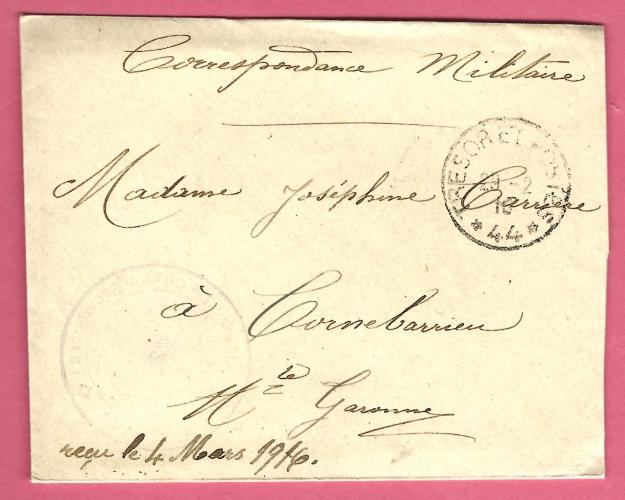 Correspondance Militaire
TRESOR ET POSTES
29 -2
16
* 44 *
Madame Joséphine Carrière
à Cornebarrieu
Hte Garonne
reçu le 4 Mars 1916.